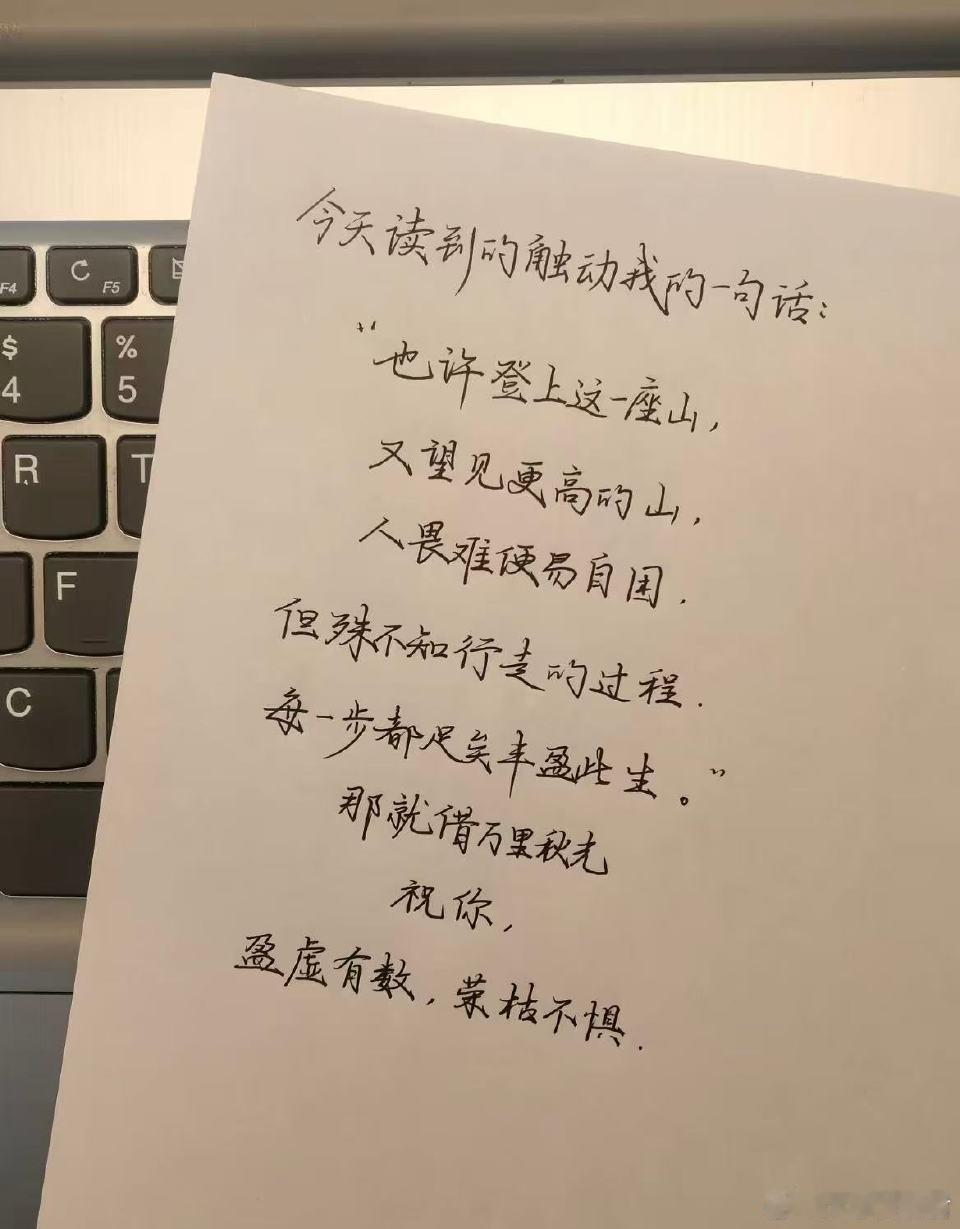 今天读到的触动我的一句话：
“也许登上这一座山，
又望见更高的山，
人畏难便易自困．
但殊不知行走的过程．
每一步都足矣丰盈此生。”
那就借万里秋光
祝你，
盈虚有数，荣枯不惧．
F4
C F5
$ 4
% 5
R
T
F
C